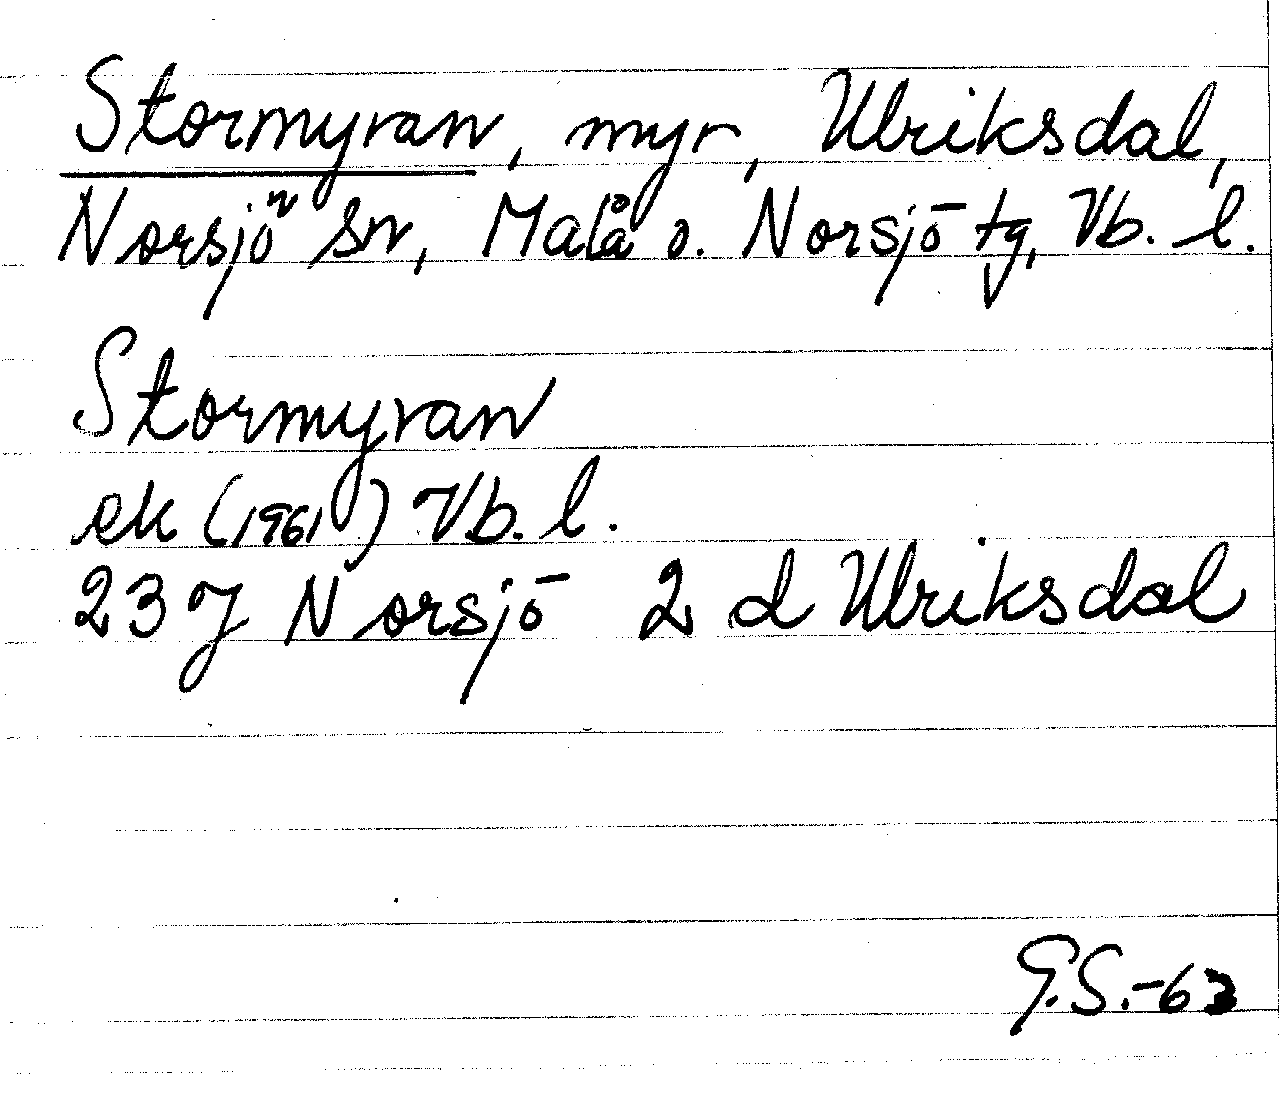 Stormyran, myr, Ulriksdal,
Norsjö sn, Malå o. Norsjö tg, Vb. l.
Stormyran
ek (1961) Vb. l.
23 J Norsjö 2 d Ulriksdal
G.S.-63